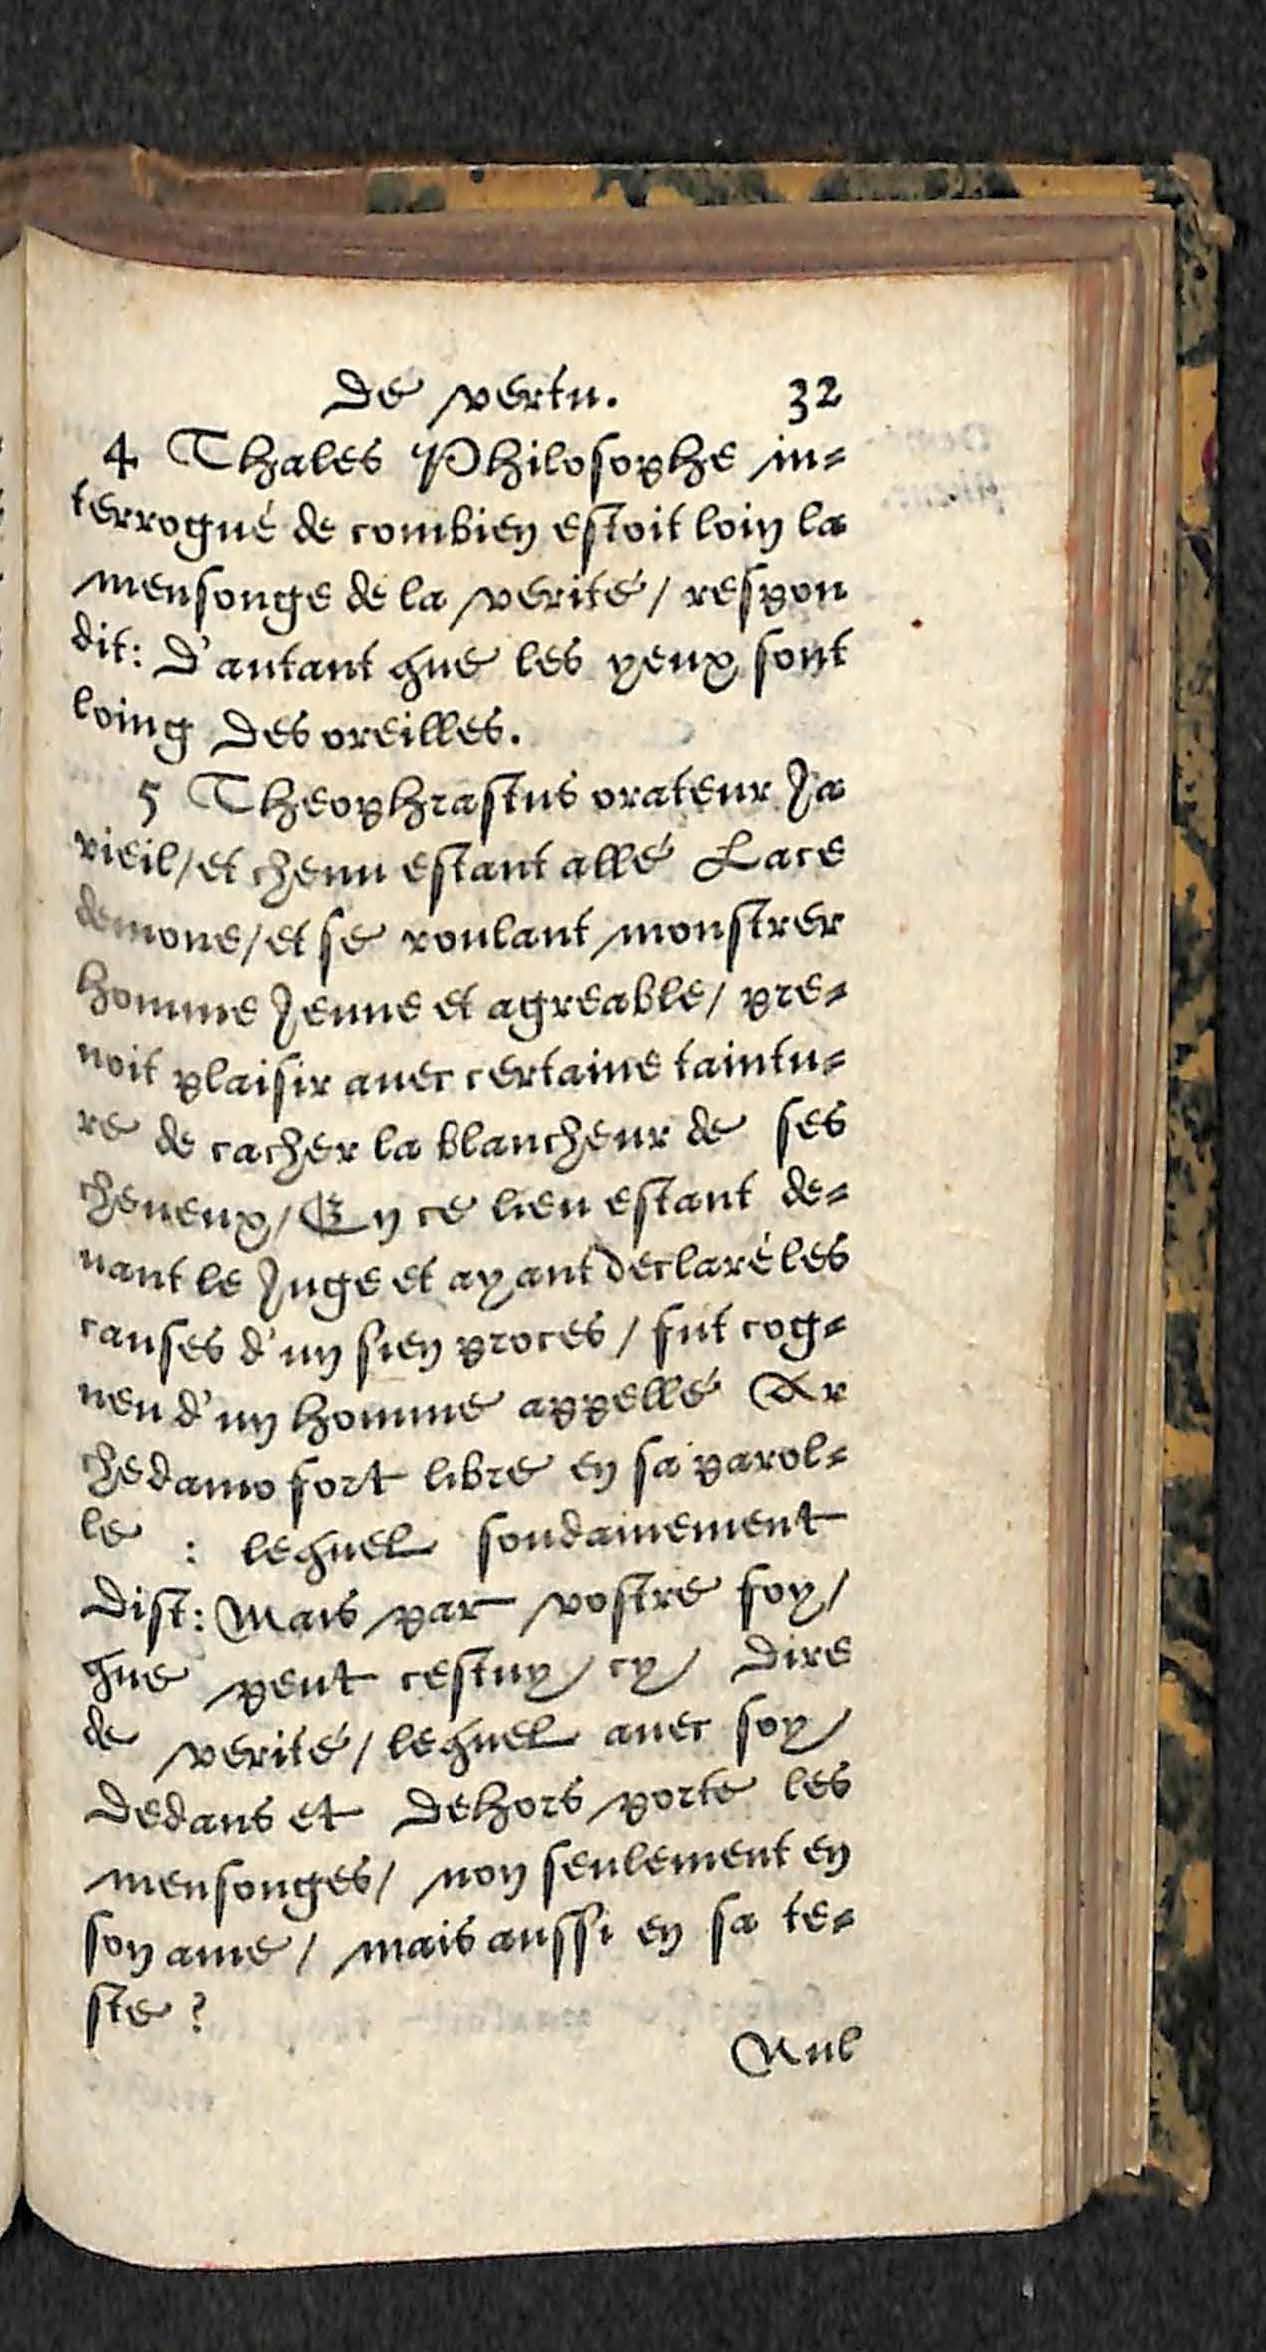 De vertu. 32
4 Thales Philosophe in-
terrogué de combien estoit loin la
mensonge de la verité/ respon
dit: D'autant que les yeux sont
loing des oreilles.
5 Theophrastus orateur Ja
vieil/ et chenu estant allé Lace
demone/ et se voulant monstrer
homme Jeune et agreable/ pre-
noit plaisir auec certaine taintu-
re de cacher la blancheur de ses
cheueux/ En ce lieu estant de-
uant le Juge et ayant declaré les
causes d'un sien proces/ fut cog-
neu d'un homme appellé Ar
chedamo fort libre en sa parol-
le : lequel soudainement
dist: Mais par vostre foy/
que peut cestuy cy dire
de verité/ lequel auec soy
dedans et dehors porte les
mensonges/ non seulement en
son ame/ mais aussi en sa te-
ste?
Rul